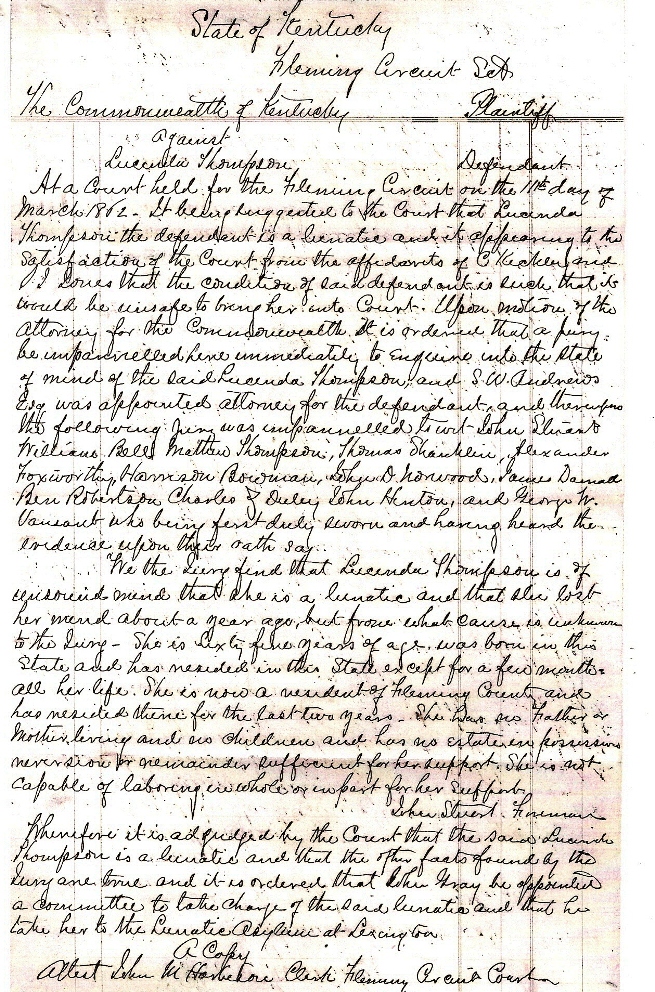 State of Kentucky
Fleming Circuit Sct
The Commonwealth of Kentucky Plaintiff
against
Lucinda Thompson Defendant
At a Court held for the Fleming Circuit on the 11th day of
March 1862 - It being suggested to the Court that Lucinda
Thompson the defendant is a lunatic and it appearing to the
Satisfaction of the Court from the affidavits of C and
I Jones that the condition of said defendant is such that it
would be unsafe to bring her into Court. Upon motion of the
attorney for the Commonwealth It is ordered that a jury
be impannelled here immediately to Enquire into the State
of mind of the said Lucinda Thompson, and S. W. Andrews
Esq was appointed attorney for the defendant, and thereupon
the following Jury was impannelled to wit John Stuart
William Bell Mathew Thompson, Thomas Shanklin, Alexander
Foxworthy, Harrison Bowman, John D. Norwood, James
Ben Robertson Charles Duley John Hinton, and George W.
Vansant who being first duly sworn and having heard the
evidence upon their oath say
We the Jury find that Lucinda Thompson is of
unsound mind that she is a lunatic and that she lost
her mind about a year ago, but from what cause is unknown
to the Jury - She is Sixty five years of age was born in this
State and has resided in this State except for a few months
all her life. She is now a resident of Fleming County and
has resided there for the last two years - She has no Father or
Mother living and no children and has no estate in possession
reversion or remainder sufficient for her support. She is not
capable of laboring in whole or in part for her Support,
John Stuart Foreman
Wherefore it is adjudged by the Court that the said Lucinda
Thompson is a lunatic and that the other facts found by the
Jury are true and it is ordered that John Gray be appointed
a committee to take charge of the said lunatic and that he
take her to the Lunatic Asylum at Lexington
A Copy
Attest John M Harbeson Clerk Fleming Circuit Court